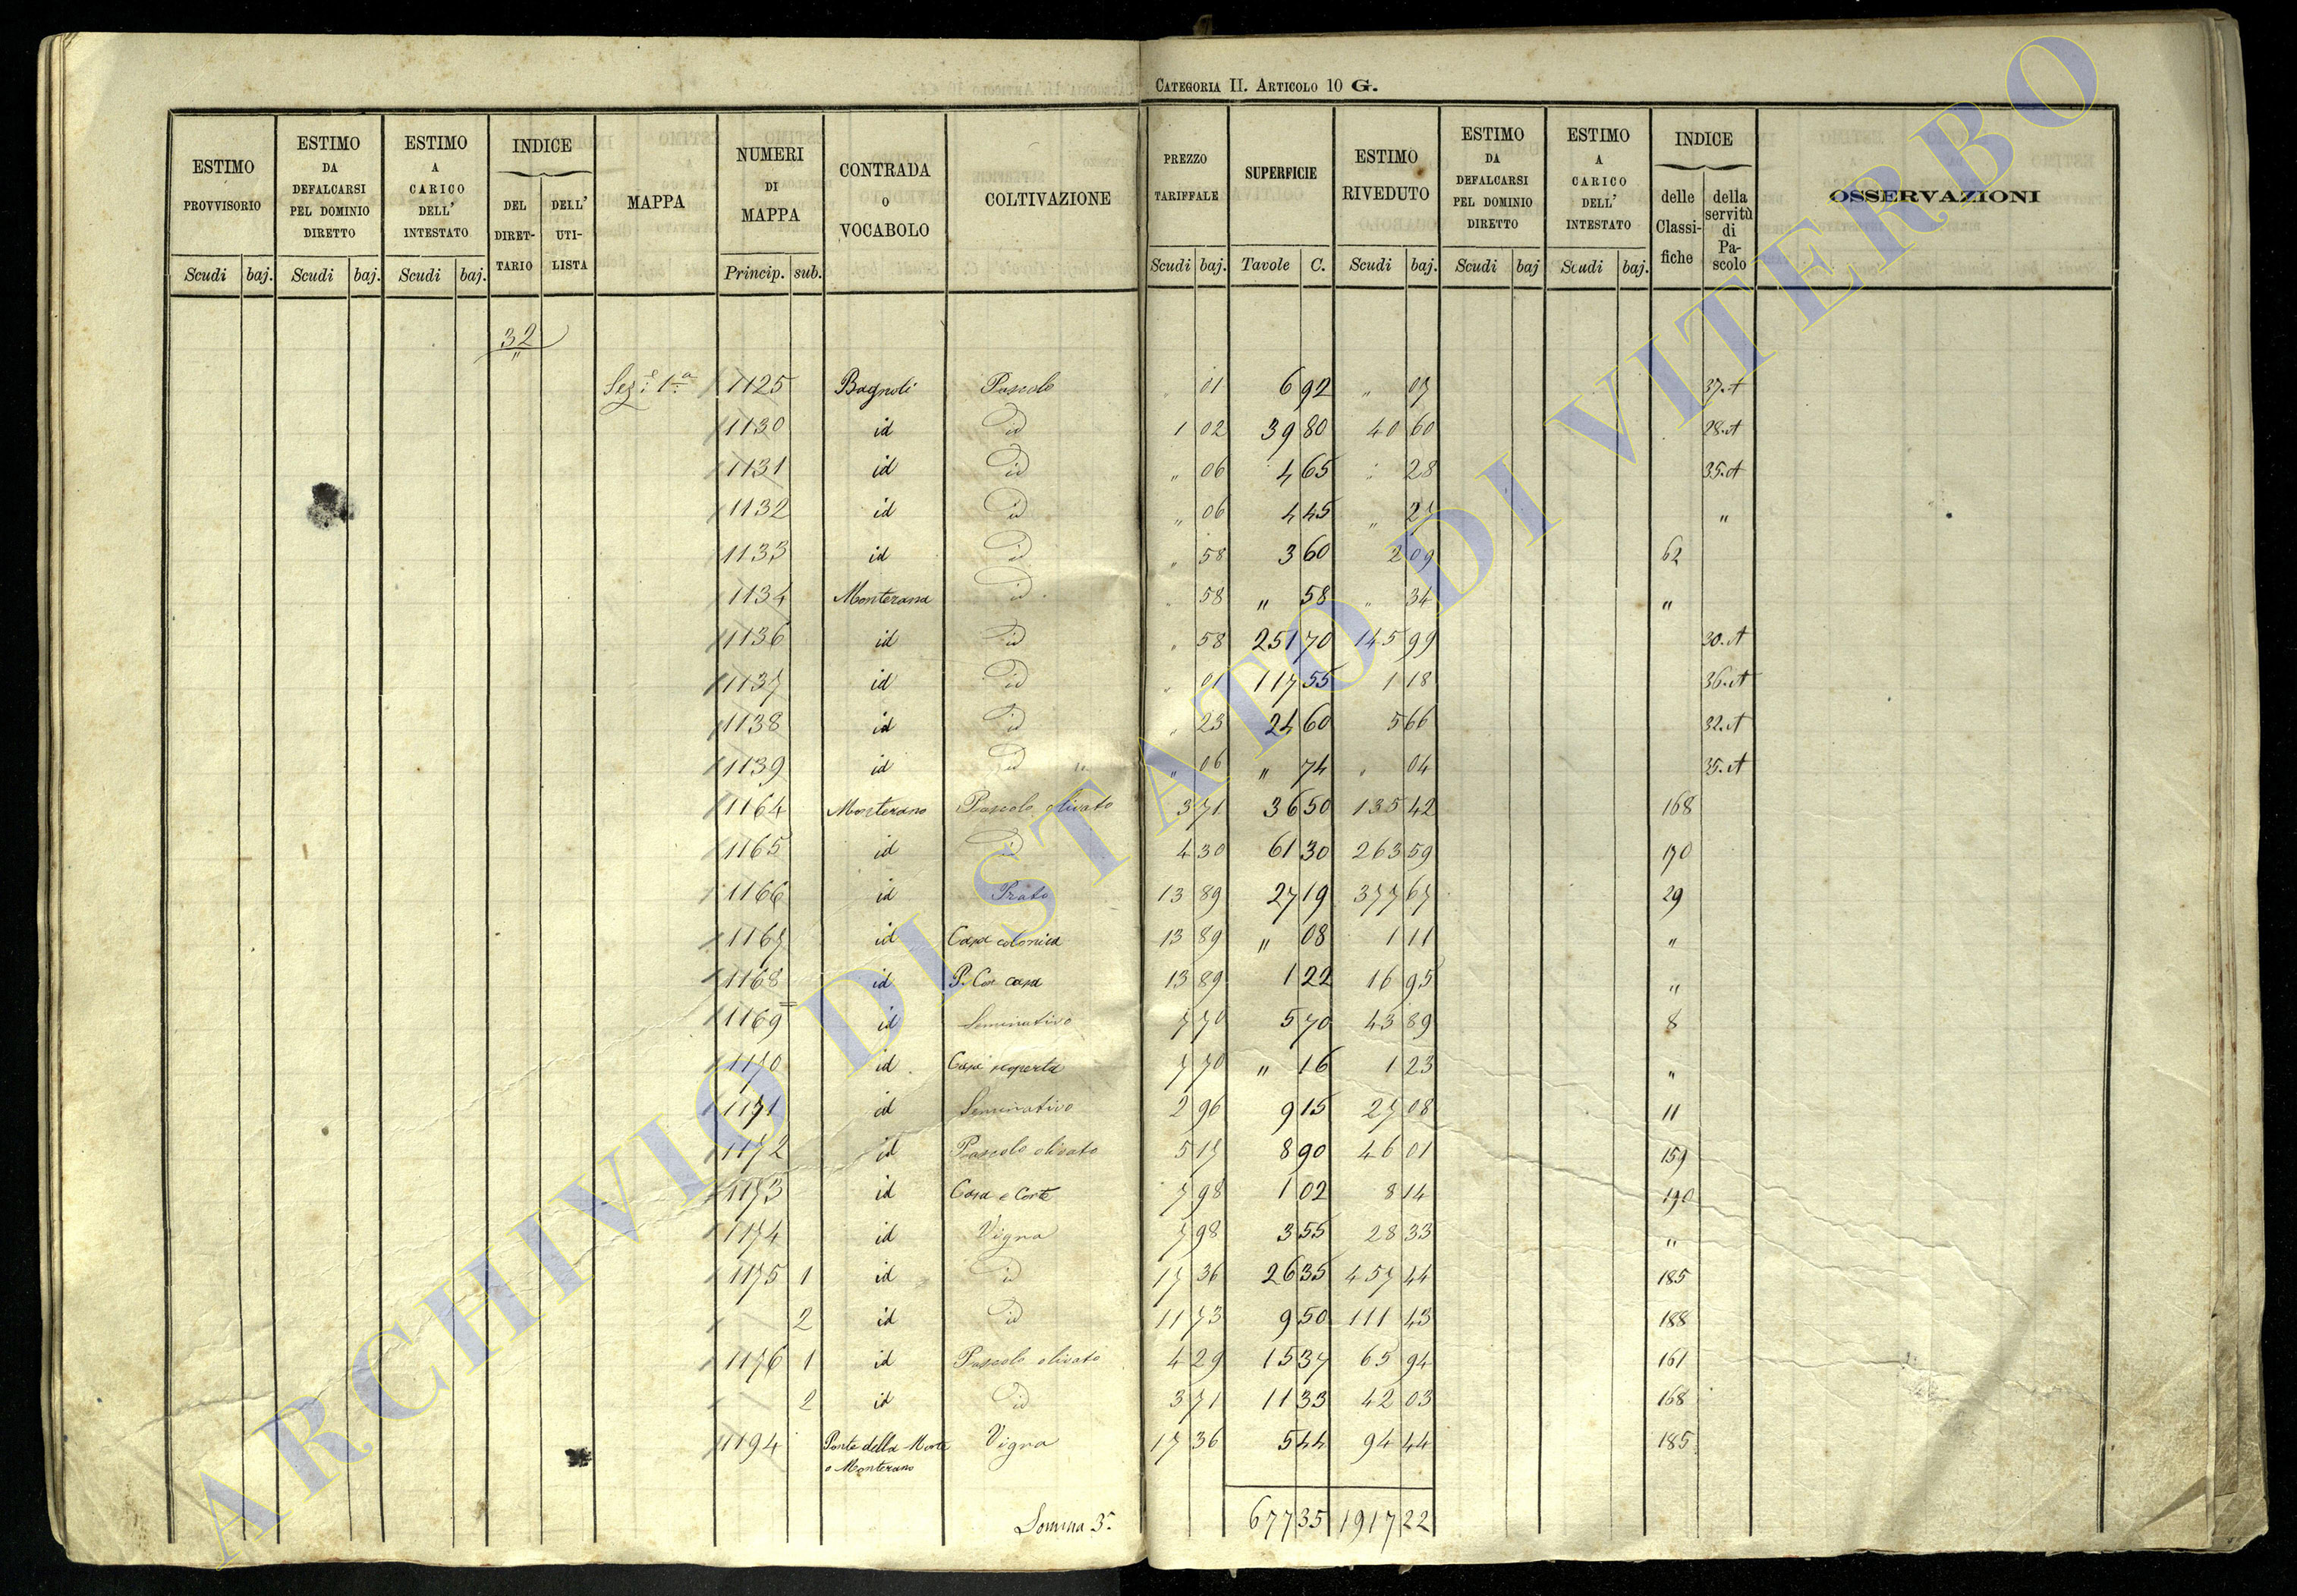 CATEGORIA II. ARTICOLO 10 G.
ESTIMO PROVVISORIO | ESTIMO DA DEFALCARSI PEL DOMINIO DIRETTO | ESTIMO A CARICO DELL' INTESTATO | INDICE DEL DIRETTARIO | DELL' UTILISTA | MAPPA | NUMERI DI MAPPA | CONTRADA O VOCABOLO | COLTIVAZIONE | PREZZO TARIFFALE | SUPERFICIE | ESTIMO RIVEDUTO | ESTIMO DA DEFALCARSI PEL DOMINIO DIRETTO | ESTIMO A CARICO DELL' INTESTATO | INDICE delle Classifiche | della servitù di Pascolo | OSSERVAZIONI
Scudi baj. Scudi baj. Scudi baj. Princip. sub. Scudi baj. Tavole C. Scudi baj. Scudi baj Scudi baj.
32
"
Sez.e 1.a 1125 Bagnoli Pascolo " 01 6 92 " 07 37.A
1130 id id 1 02 39 80 40 60 28.A
1131 id id " 06 4 65 " 28 35.A
1132 id id " 06 4 45 " 27 "
1133 id id " 58 3 60 2 09 62 "
1134 Monterana id " 58 " 58 " 34 "
1136 id id " 58 251 70 145 99 30.A
1137 id id " 01 117 55 1 18 36.A
1138 id id " 23 24 60 5 66 32.A
1139 id id " 06 " 74 " 04 35.A
1164 Monterano Pascolo olivato 3 71 36 50 135 42 168
1165 id id 4 30 61 30 263 59 170
1166 id Prato 13 89 27 19 377 67 29
1167 id Casa colonica 13 89 " 08 1 11 "
1168 id P. Con casa 13 89 1 22 16 95 "
1169 id Seminativo 7 70 5 70 43 89 8
1170 id Casa scoperta 7 70 " 16 1 23 "
1171 id Seminativo 2 96 9 15 27 08 11
1172 id Pascolo olivato 5 17 8 90 46 01 159
1173 id Casa e Corte 7 98 1 02 8 14 190
1174 id Vigna 7 98 3 55 28 33 "
1175 1 id id 17 36 26 35 457 44 185
2 id id 11 73 9 50 111 43 188
1176 1 id Pascolo olivato 4 29 15 37 65 94 161
2 id id 3 71 11 33 42 03 168
1194 Ponte della Morte Vigna 17 36 5 44 94 44 185
o Monterano
Somma 3.a 677 35 1917 22
ARCHIVIO DI STATO DI VITERBO